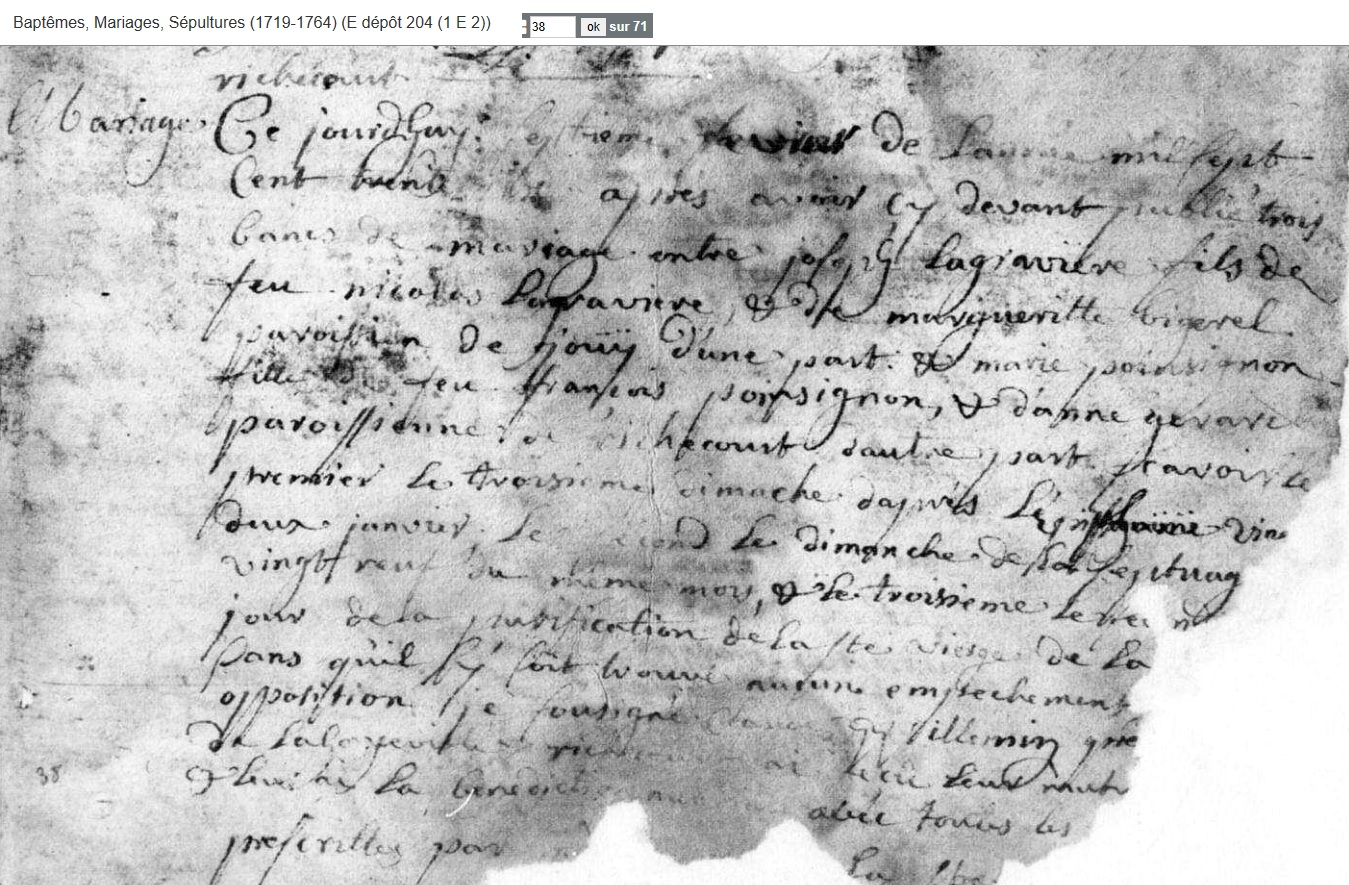 Baptêmes, Mariages, Sépultures (1719-1764) (E dépôt 204 (1 E 2))
38 ok sur 71
richecourt
Mariage Ce jourdhuy septieme fevrier de Lannée mil sept
Cent trente apres avoir cy devant publié trois
bancs de mariage entre joseph Lagraviere fils de
feu nicolas Lagraviere, & de margueritte bigerel
paroissien de joüy d'une part. & marie poinsignon
fille de feu françois poinsignon, & d'anne gerard
paroissienne de richecourt dautre part scavoir le
premier le troisieme dimache dapres L'epiphanie vin
deux janvier. Le second le dimanche de la septuag
vingt neuf du même mois, & le troisieme le
jour de la purification de la ste vierge de la
sans qu'il s'y soit trouvé aucune empechement
opposition je sousigné villemin
de Lahayeville & ai leur mut
& la benedict avec toutes les
prescrittes par
38 La ste